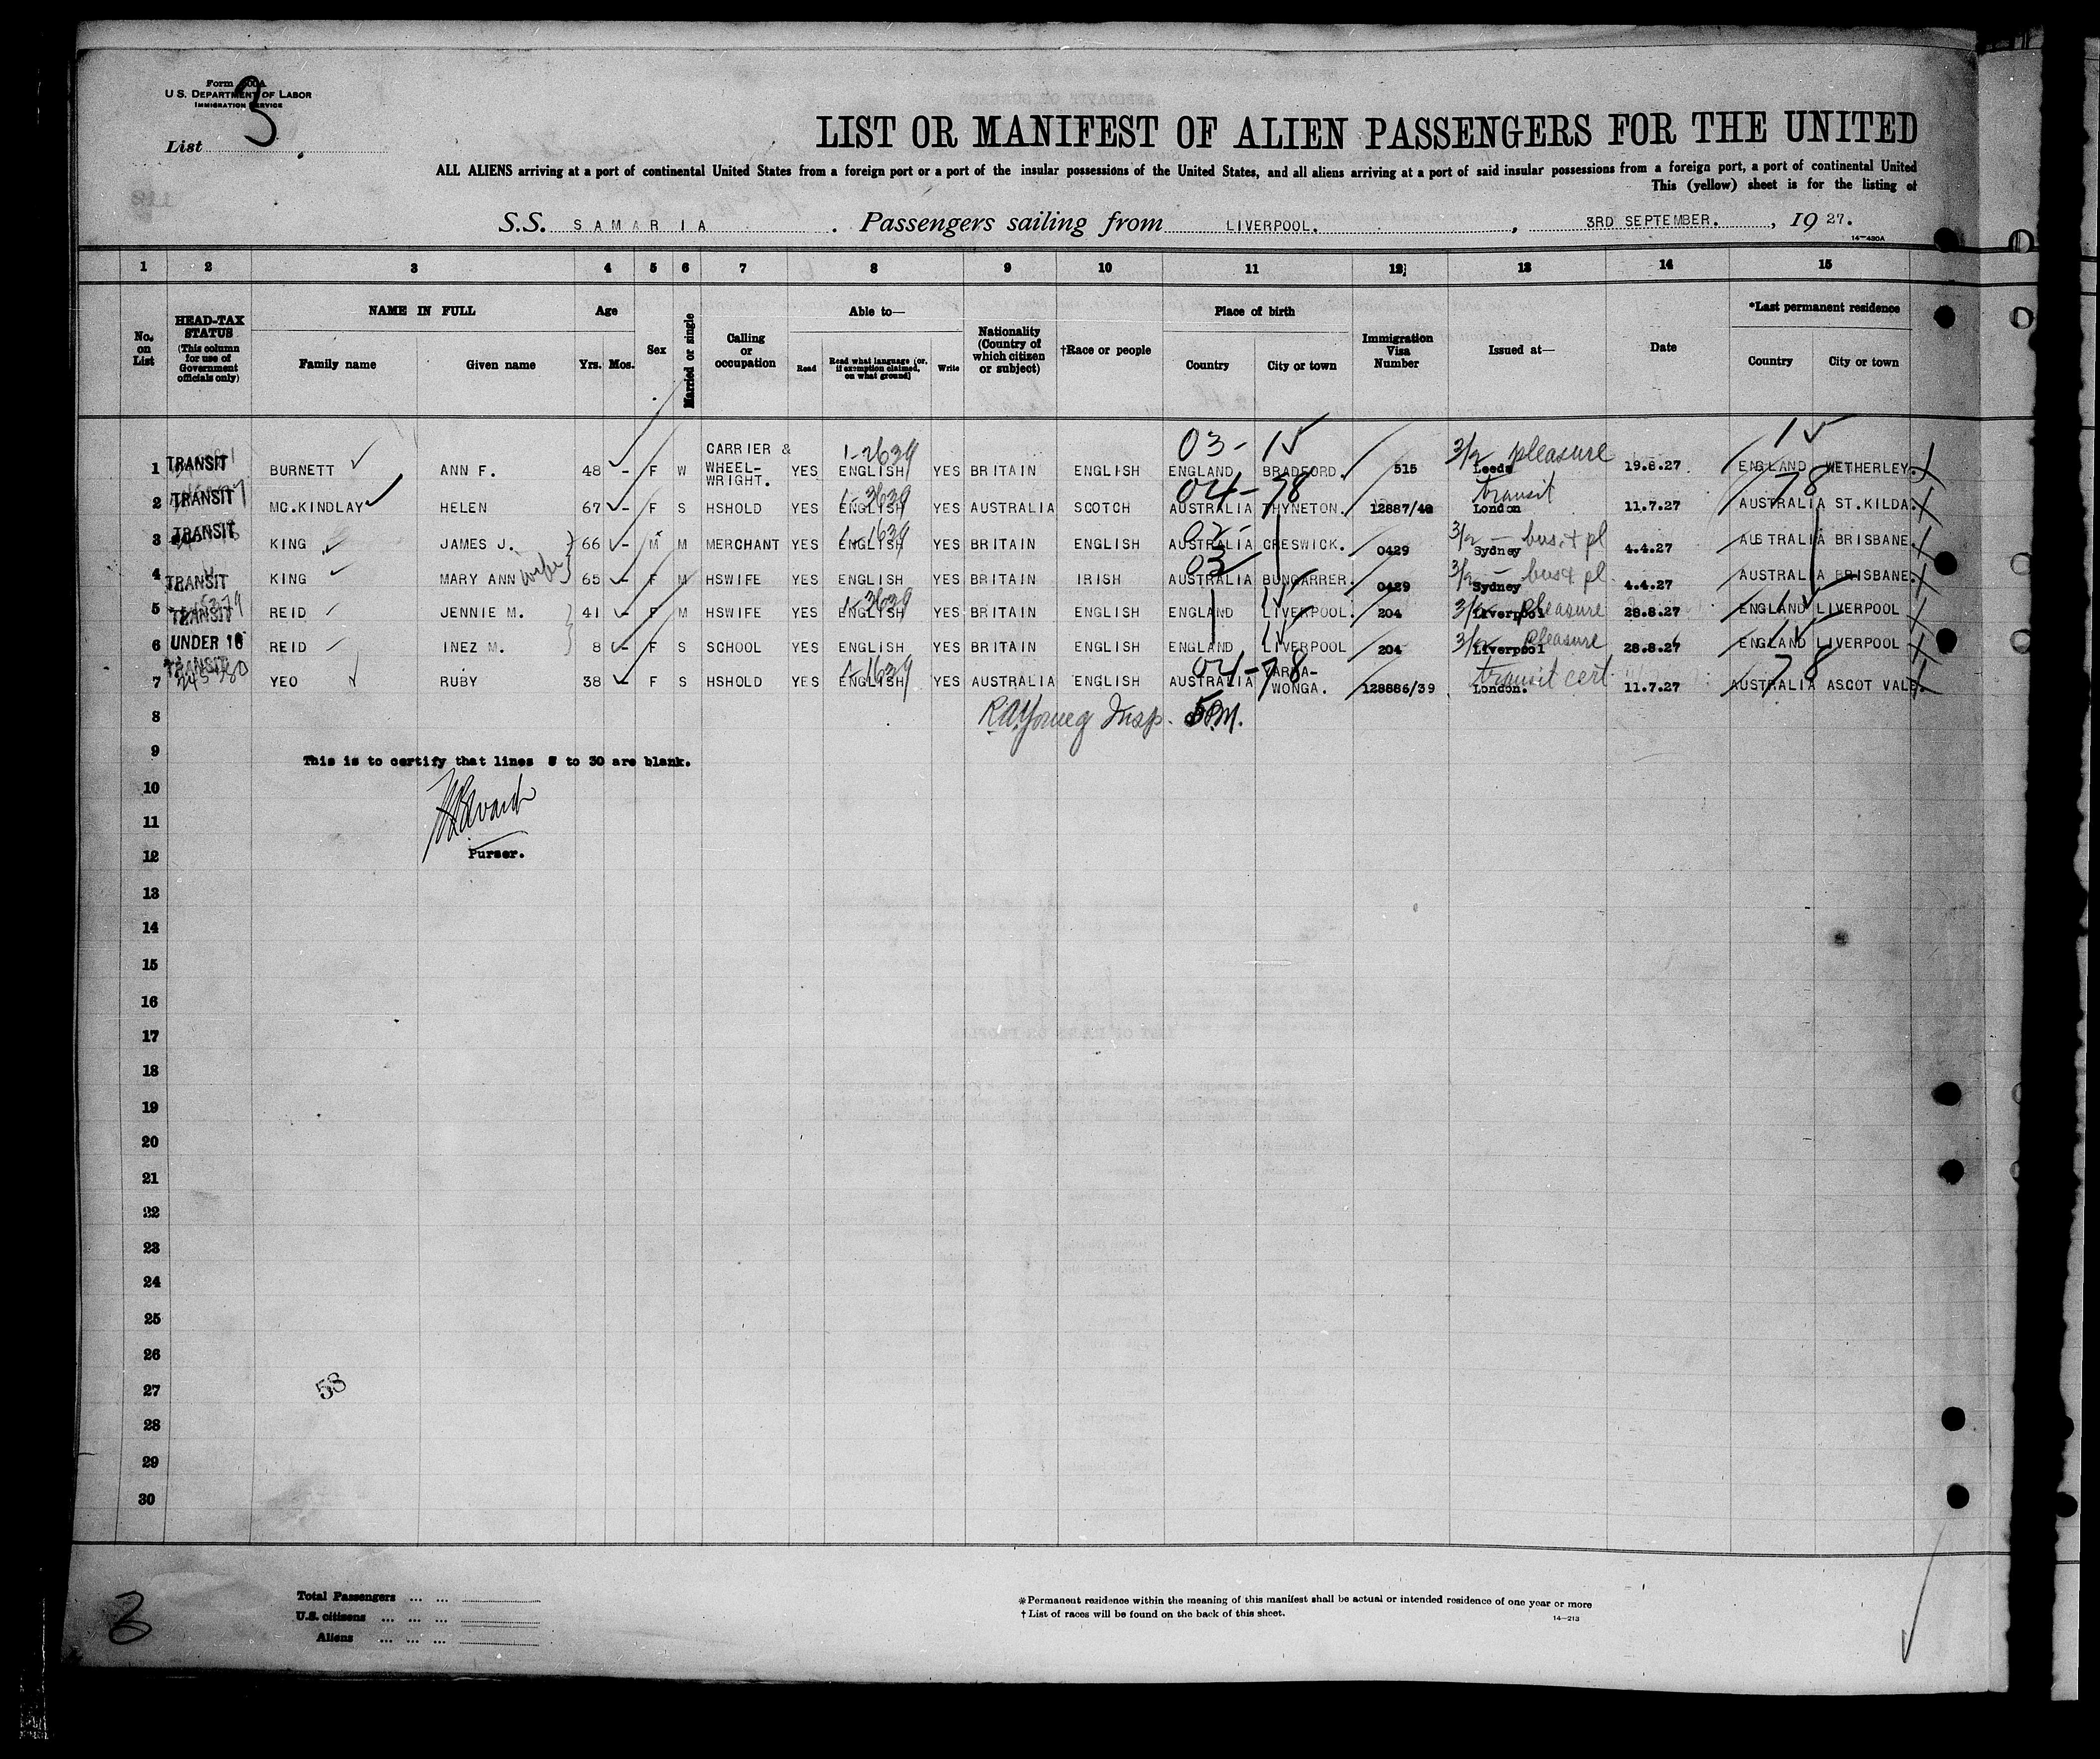 Form 500A
U.S. DEPARTMENT OF LABOR
IMMIGRATION SERVICE
List 3
LIST OR MANIFEST OF ALIEN PASSENGERS FOR THE UNITED
ALL ALIENS arriving at a port of continental United States from a foreign port or a port of the insular possessions of the United States, and all aliens arriving at a port of said insular possessions from a foreign port, a port of continental United
This (yellow) sheet is for the listing of
S.S. SAMARIA . Passengers sailing from LIVERPOOL. , 3RD SEPTEMBER. , 19 27.
14-430A
1 2 3 4 5 6 7 8 9 10 11 12 13 14 15
No. on List
HEAD-TAX STATUS (This column for use of Government officials only)
NAME IN FULL
Family name Given name
Age
Yrs. Mos.
Sex
Married or single
Calling or occupation
Able to—
Read Read what language (or, if exemption claimed, on what ground) Write
Nationality (Country of which citizen or subject)
†Race or people
Place of birth
Country City or town
Immigration Visa Number
Issued at—
Date
*Last permanent residence
Country City or town
03- 1 1-2639 3/2 pleasure 1
1 TRANSIT BURNETT ANN F. 48 - F W CARRIER & WHEEL-WRIGHT. YES ENGLISH YES BRITAIN ENGLISH ENGLAND BRADFORD. 515 Leeds 19.8.27 ENGLAND WETHERLEY.
04-78 1-3639 transit 78
2 TRANSIT MC.KINDLAY HELEN 67 - F S HSHOLD YES ENGLISH YES AUSTRALIA SCOTCH AUSTRALIA THYNETON. 12887/40 London 11.7.27 AUSTRALIA ST.KILDA.
02- 1-1639 3/2 - bus. + pl
3 TRANSIT KING JAMES J. 66 - M M MERCHANT YES ENGLISH YES BRITAIN ENGLISH AUSTRALIA CRESWICK. 0429 Sydney 4.4.27 AUSTRALIA BRISBANE.
03 3/2 - bus + pl.
4 TRANSIT KING MARY ANN wife 65 - F M HSWIFE YES ENGLISH YES BRITAIN IRISH AUSTRALIA BUNGARRER. 0429 Sydney 4.4.27 AUSTRALIA BRISBANE.
5 TRANSIT REID JENNIE M. 41 - F M HSWIFE YES 1-3639 ENGLISH YES BRITAIN ENGLISH ENGLAND LIVERPOOL. 204 3/2 - pleasure Liverpool 28.8.27 ENGLAND LIVERPOOL
6 UNDER 16 REID INEZ M. 8 - F S SCHOOL YES ENGLISH YES BRITAIN ENGLISH ENGLAND LIVERPOOL 204 3/2 - pleasure Liverpool 28.8.27 ENGLAND LIVERPOOL
04-78 1-1639 transit cert. 78
7 TRANSIT YEO RUBY 38 - F S HSHOLD YES ENGLISH YES AUSTRALIA ENGLISH AUSTRALIA YARRA-WONGA. 128886/39 London. 11.7.27 AUSTRALIA ASCOT VALE.
8 Insp.
9
This is to certify that lines 8 to 30 are blank.
10
11
12 Purser.
13
14
15
16
17
18
19
20
21
22
23
24
25
26
27 58
28
29
30
3
Total Passengers ... ...
U.S. citizens ... ... ...
Aliens ... ... ...
*Permanent residence within the meaning of this manifest shall be actual or intended residence of one year or more
† List of races will be found on the back of this sheet. 14-213